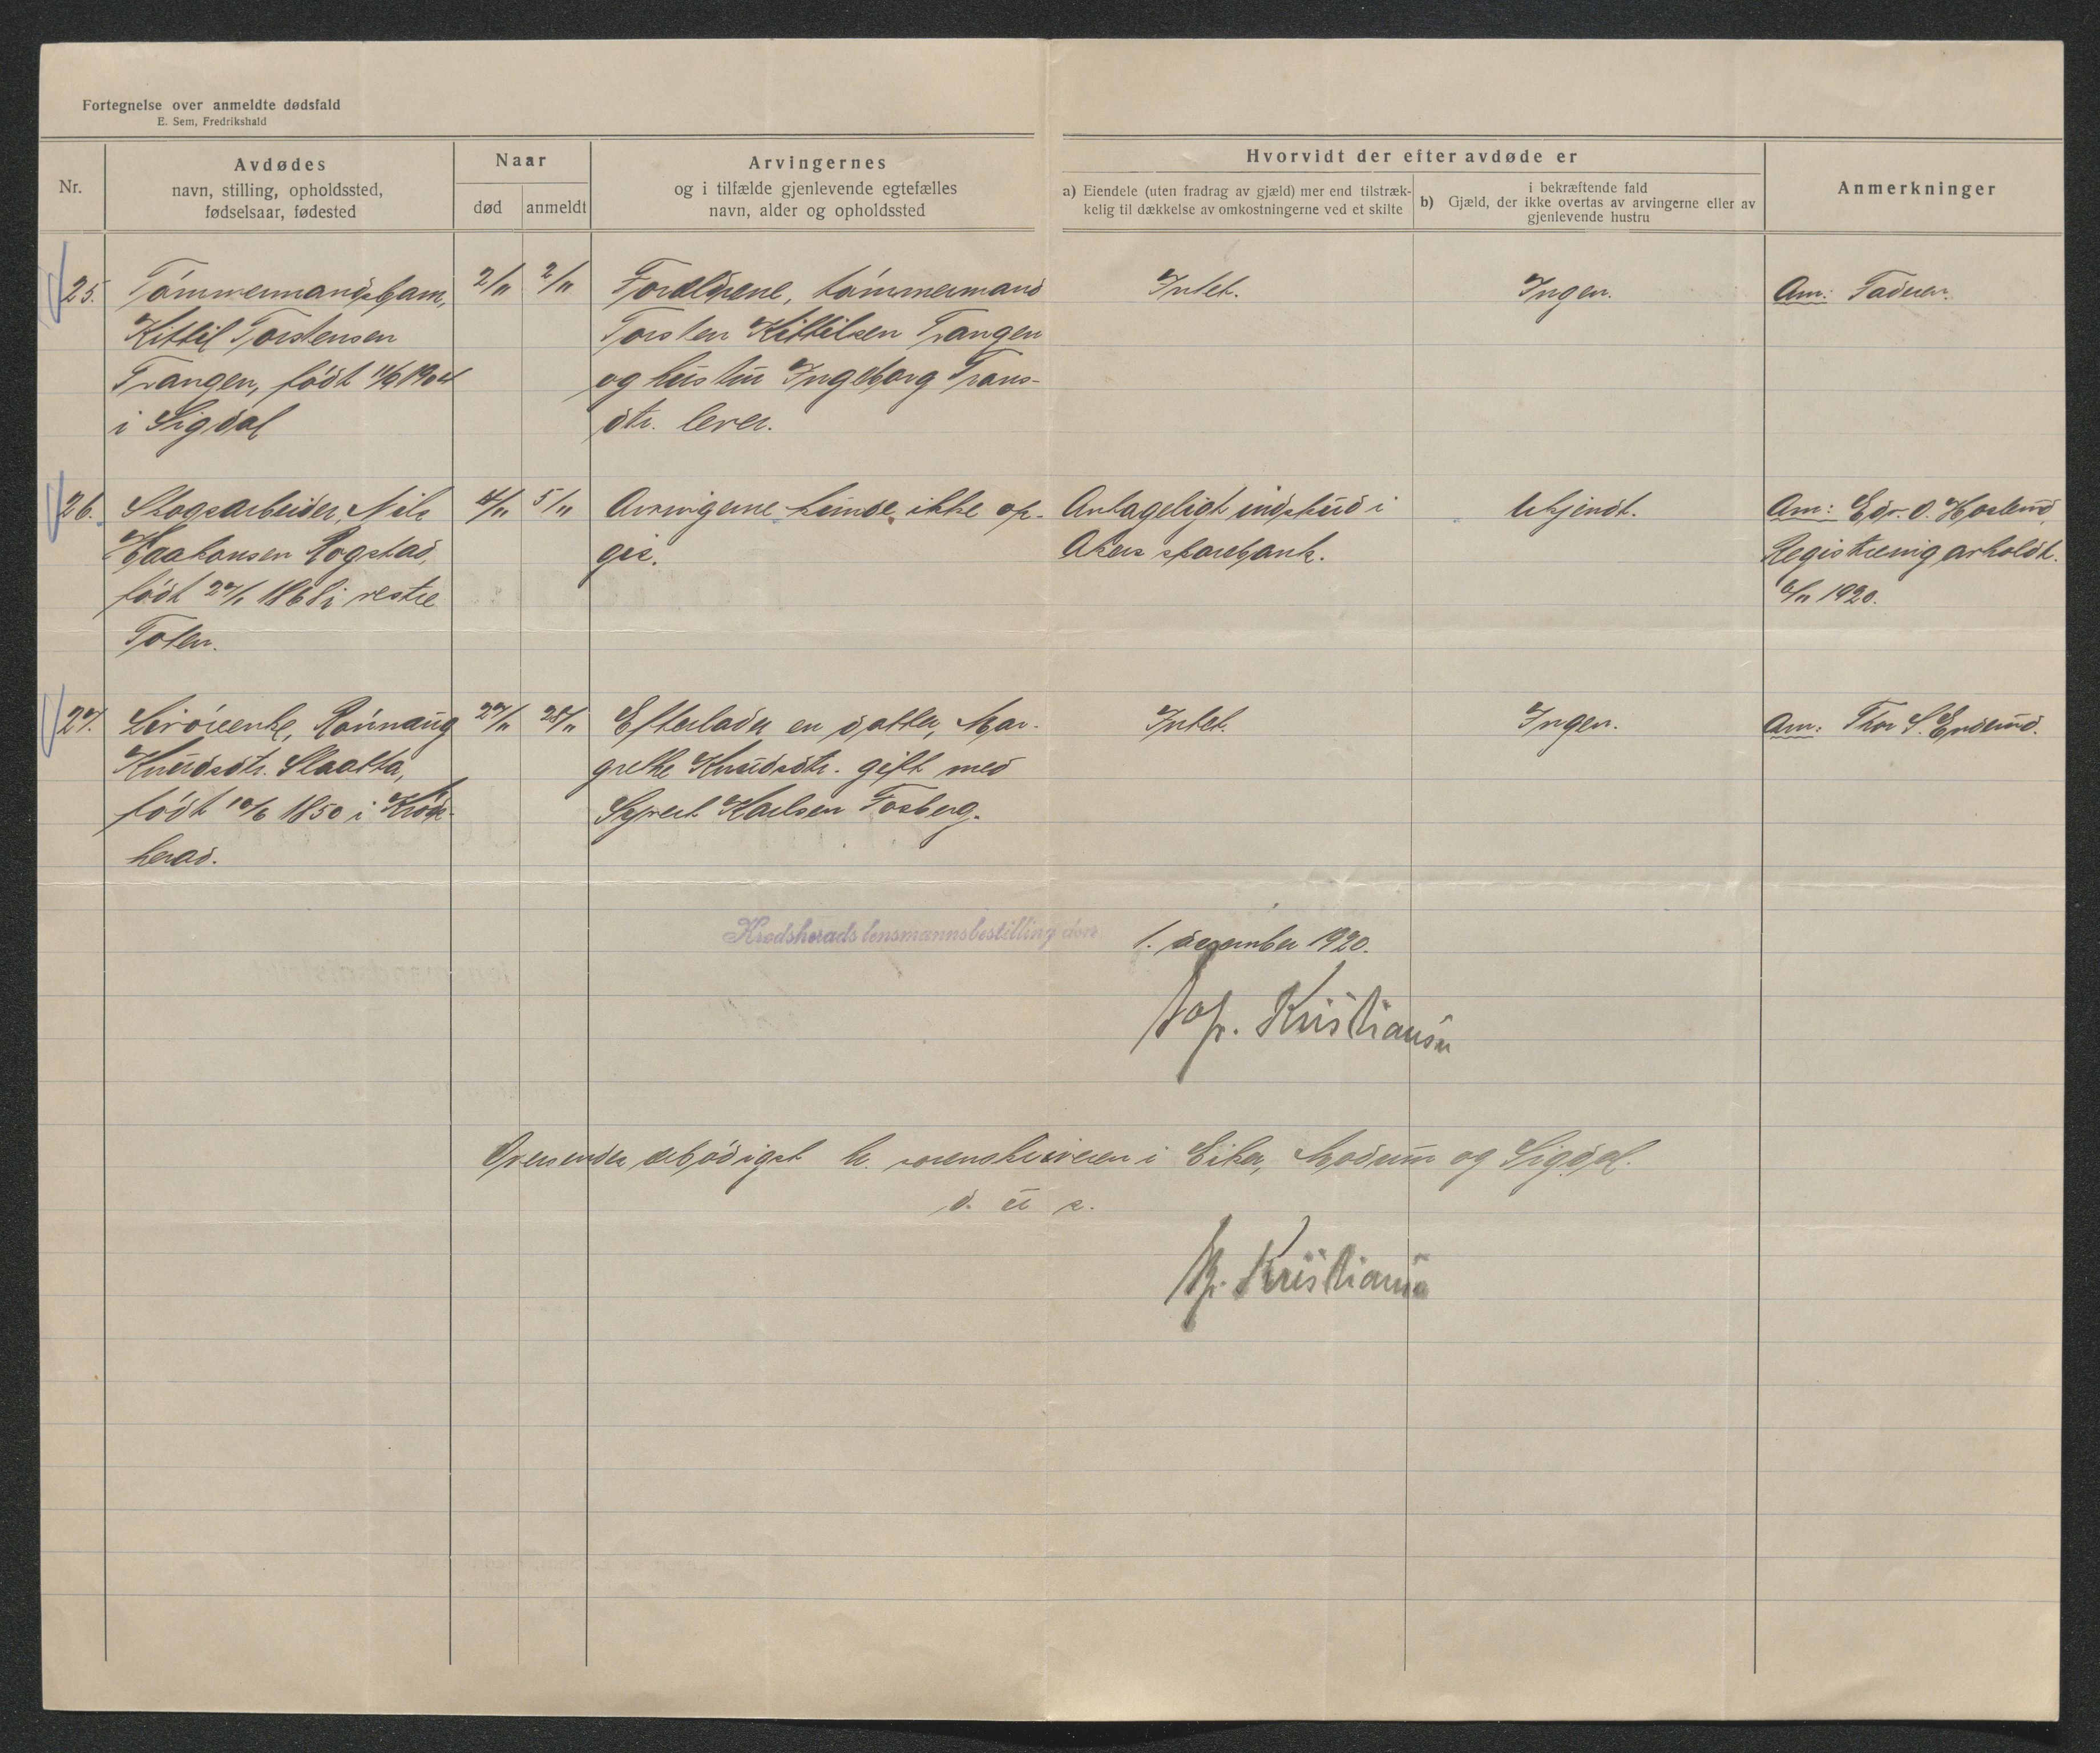 Fortegnelse over anmeldte dødsfald
E. Sem, Fredrikshald
Nr.
Avdødes
navn, stilling, opholdssted,
fødselsaar, fødested
Naar
død
anmeldt
Arvingernes
og i tilfælde gjenlevende egtefælles
navn, alder og opholdssted
Hvorvidt der efter avdøde er
a) Eiendele (uten fradrag av gjæld) mer end tilstræk-
kelig til dækkelse av omkostningerne ved et skifte
b) i bekræftende fald
Gjæld, der ikke overtas av arvingerne eller av
gjenlevende hustru
Anmerkninger
25.
Tømmermandsbarn,
Kittil Torstensen
Trangen, født 1904
i Sigdal
2/11
2/11
Forældrene, tømmermand
Torsten Kittilsen Trangen
og hustru Ingeborg Trans-
dtr. lever.
Intet.
Ingen.
Anm: Faderen.
26.
Skogsarbeider, Nils
Haakonsen Rogstad,
født 27/1 1868 i vestre
Toten.
4/11
5/11
Arvingerne kunde ikke op-
gis.
Antageligt indskud i
Akers sparebank.
Ukjendt.
Anm: Edv. O. Hoslund,
Registrering avholdt
6/11 1920.
27.
Livøreenke, Rønnaug
Knudsdtr. Slaatta,
født 10/6 1850 i Kröds-
herad.
27/11
28/11
Efterlader en datter, Mar-
grethe Knudsdtr. gift med
Syvert Karlsen Fosberg.
Intet.
Ingen.
Anm: Thor S. Enderud.
Krødsherads lensmannsbestilling den
1. desember 1920.
Kristiansen
Oversendes ærbødigst hr. sorenskriveren i Eiker, Modum og Sigdal.
d. u s.
Kristiansen